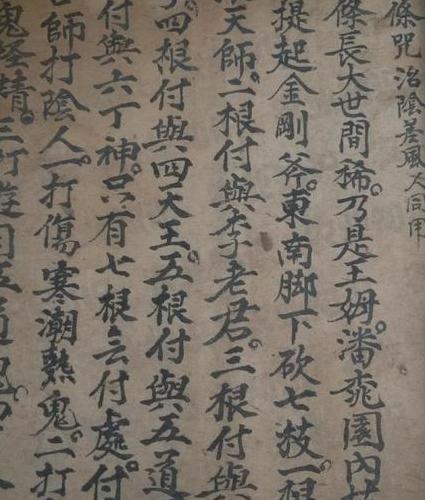 條咒治陰差風火同用
條長大世間稀。乃是王姆潘桃園内
提起金剛斧。東南脚下砍七枝一根
天師。二根付與李老君。三根付與
四根付與四天王。五根付與五道
付與六丁神。只有七根云付處。付
師打陰人。一打傷寒潮熱鬼。二打
鬼怪精。三打遊